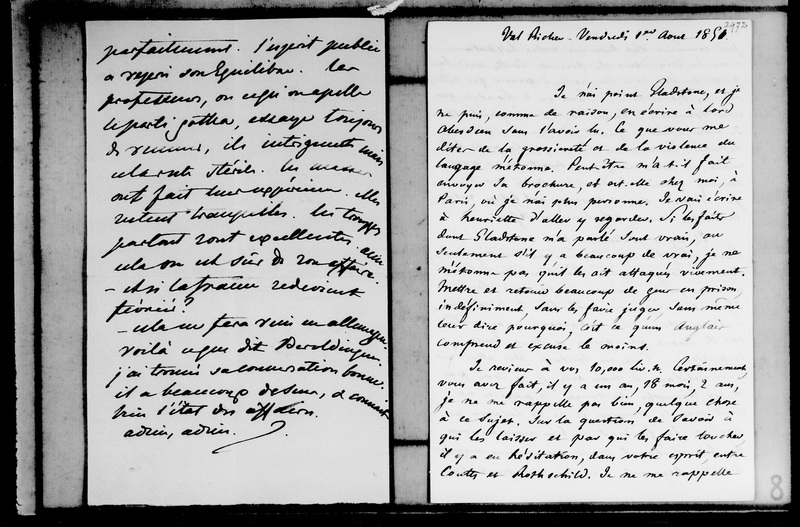 parfaitement. L'esprit public
a repris son équilibre. Les
professeurs, ou ce qu'on appelle
le parti gotha, essaye toujours
de remuer, ils intriguent mais
cela reste stérile. Les masses
ont fait leur expérience. Elles
restent tranquilles. Les troupes
partout sont excellentes, avec
cela on est sûr de son affaire.
- et si la france redevient
février?
- cela ne fera rien en allemagne.
voilà ce que dit Beroldingen.
j'ai trouvé sa conversation bonne.
il a beaucoup de sens, & connait
bien l'état des affaires.
adieu, adieu.
2972
Val Richer - Vendredi 1er Aout 1851
Je n'ai point Gladstone, et je
ne puis, comme de raison, en écrire à lord
Aberdeen sans l'avoir lu. Ce que vous me
dites de la grossièreté et de la violence du
langage m'étonne. Peut-être m'a-t-il fait
envoyer sa brochure, et est-elle chez moi, à
Paris, où je n'ai plus personne. Je vais écrire
à henriette d'aller y regarder. Si les faits
dont Gladstone m'a parlé sont vrais, ou
seulement s'il y a beaucoup de vrai, je ne
m'étonne pas qu'il les ait attaqués vivement.
Mettre et retenir beaucoup de gens en prison,
indéfiniment, sans les faire juger, sans même
leur dire pourquoi, c'est ce qu'un Anglais
comprend et excuse le moins.
Je reviens à vos 10,000 liv. st. Certainement
vous avez fait, il y a un an, 18 mois, 2 ans,
je ne me rappelle pas bien, quelque chose
à ce sujet. Sur la question de savoir à
qui les laisser et par qui les faire toucher
il y a eu hésitation, dans votre esprit, entre
Coutts et Rothschild. Je ne me rappelle
8